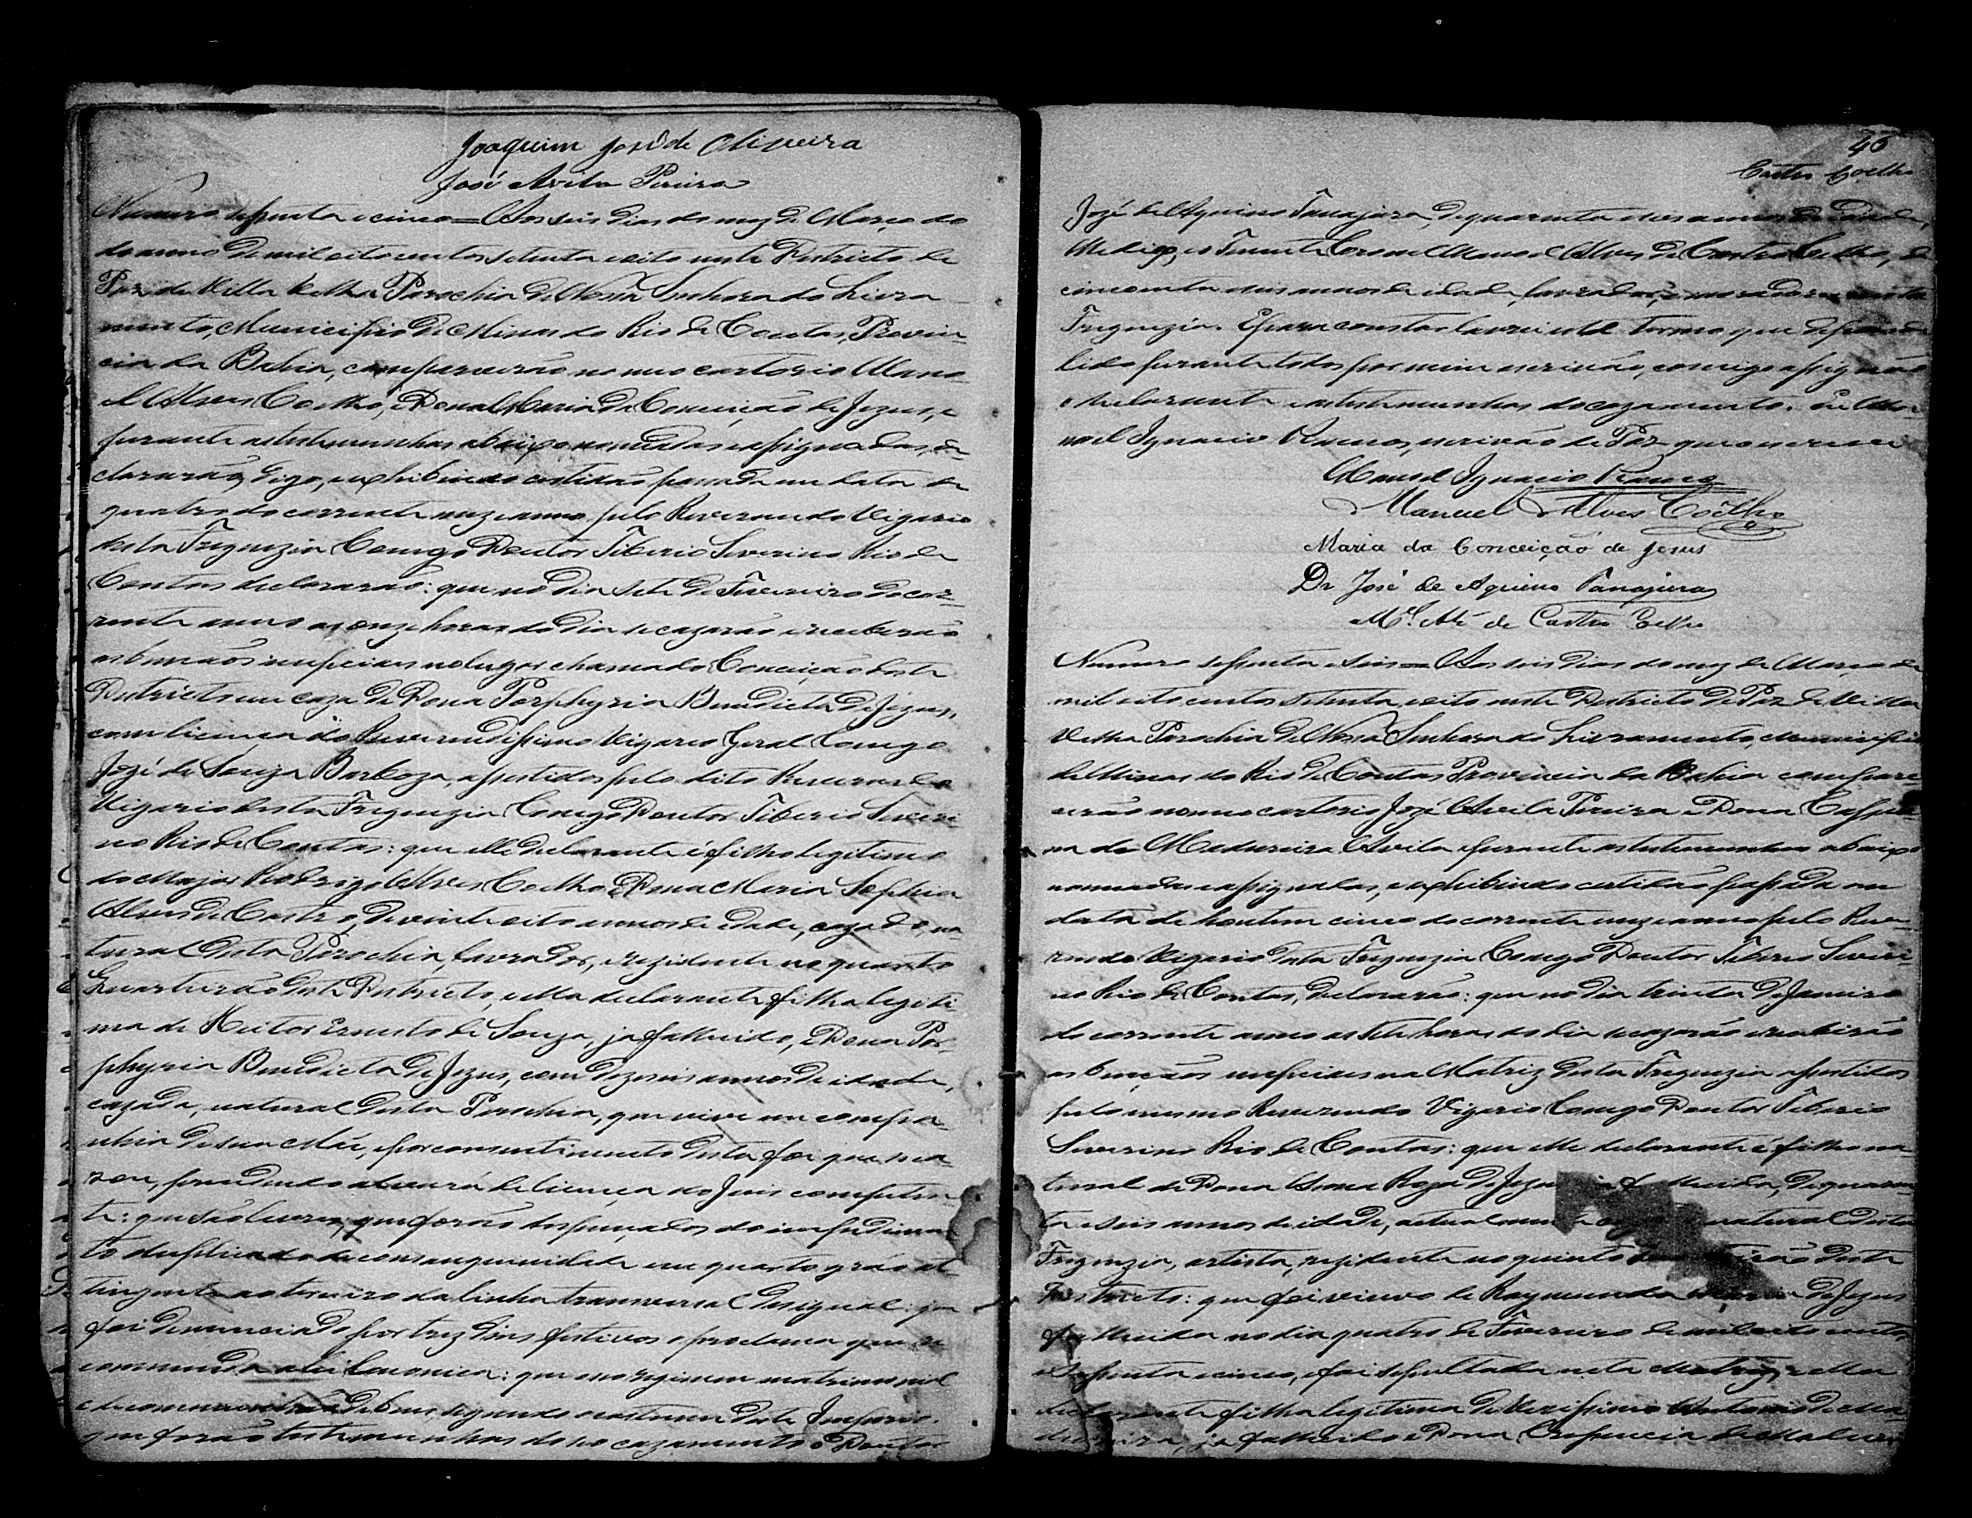 Joaquim José de Oliveira
José Avila Pereira
Numero sessenta e cinco = Aos seis dias do mez de Março do
do anno de mil oito centos setenta e oito neste Districto de
Paz da Villa Velha Parochia de Nossa Senhora do Livra
mento, Municipio de Minas do Rio de Contas, Provin-
cia da Bahia, comparecerão no meo cartorio Mano-
el Alves Coelho, e Dona Maria da Conceição de Jezus, e
perante as testemunhas abaixo nomeadas e assignadas, de-
clararão, digo, exhibindo certidão passada em data de
quatro do corrente mez e anno pelo Reverendo Vigario
desta Freguezia Conego Doutor Tiberio Severino Rio de
Contas declararão: que no dia sete de Fevereiro do cor-
rente anno as onze horas do dia se cazarão e receberão
as bençãos nupciaes no lugar chamado Conceição deste
Districto em caza de Dona Porphyria Benedicta de Jezus,
com licença do Reverendissimo Vigario Geral Conego
José de Souza Barboza, assistidos pelo dito Reverendo
Vigario desta Freguezia Conego Doutor Tiberio Severi-
no Rio de Contas: que elle declarante é filho legitimo
do Major Rodrigo Alves Coelho e Dona Maria Sophia
Alves de Castro, de vinte oito annos de idade, cazado, na-
tural desta Parochia, lavrador, rezidente no quarto
Quarteirão deste Districto, e ella declarante filha legiti
ma de Heitor Ernesto de Souza, ja fallecido, e Dona Por-
phyria Benedicta de Jezus, com dezeseis annos de idade,
cazada, natural desta Parochia, que vive em compa-
nhia de sua Mãi, e por consentimento desta foi que se ca-
zou, precedendo alvará de licença do Juis competen-
te: que são livres, que forão dispensados do impedimen-
to duplicado de consanguinidade em quarto gráo at-
tingente ao terceiro da linha transversal desigual: que
foi denunciado por trez dias festivos o proclama que re
commenda a lei Canonica: que o seo regimen matrimonial
é de communhão de bens, segundo o costume deste Imperio.
que forão testemunhas do seo cazamento o Doutor
46
Castro Coelho
José de Aquino Tanajura, de quarenta e seis annos de idade,
Medico, e o Tenente Coronel Manoel Alves de Castro Coelho, de
cincoenta e seis annos de idade, lavrador, e moradores nesta
Freguezia. E para constar lavrei este termo que depois de
lido perante todos por mim escrivão, comigo assignão
o declarante e as testemunhas do cazamento. Eu Ma-
noel Ignacio Ramos, escrivão de Paz que o escrevi
Manoel Ignacio Ramos
Manuel Alves Coêlho
Maria da Conceição de Jesus
Dr José de Aquino Tanajura
Mel. Als. de Castro Coelho
Numero sessenta e seis = Aos seis dias do mez de Março de
mil oito centos setenta e oito neste Districto de Paz de Villa
Velha Parochia de Nossa Senhora do Livramento, Municipio
de Minas do Rio de Contas Provincia da Bahia compare
cerão no meo cartorio José Avila Pereira e Dona
na de Madureira Avila e perante as testemunhas abaixo
nomeadas e assignadas, e exhibindo certidão passada em
data de hontem cinco do corrente mez e anno pelo Reve-
rendo Vigario desta Freguezia Conego Doutor Tiberio Severi-
no Rio de Contas, declararão: que no dia trinta de Janeiro
do corrente anno as sete horas do dia se cazarão e receberão
as bençãos nupciaes na Matriz desta Freguezia assistidos
pelo mesmo Reverendo Vigario Conego Doutor Tiberio
Severino Rio de Contas: que elle declarante é filho na-
tural de Dona Anna Roza de Jezus ja fallecida, de quaren-
ta e seis annos de idade, actualmente natural desta
Freguezia, artista, rezidente no quinto Quarteirão deste
Districto: que foi viuvo de Raymunda de Jezus
fallecida no dia quatro de Fevereiro de mil oito centos
e sessenta e cinco, e foi sepultada nesta Matriz, e ella
declarante filha legitima de Verissimo Antonio de Ma-
dureira, ja fallecido e Dona Crescencia de Madurei